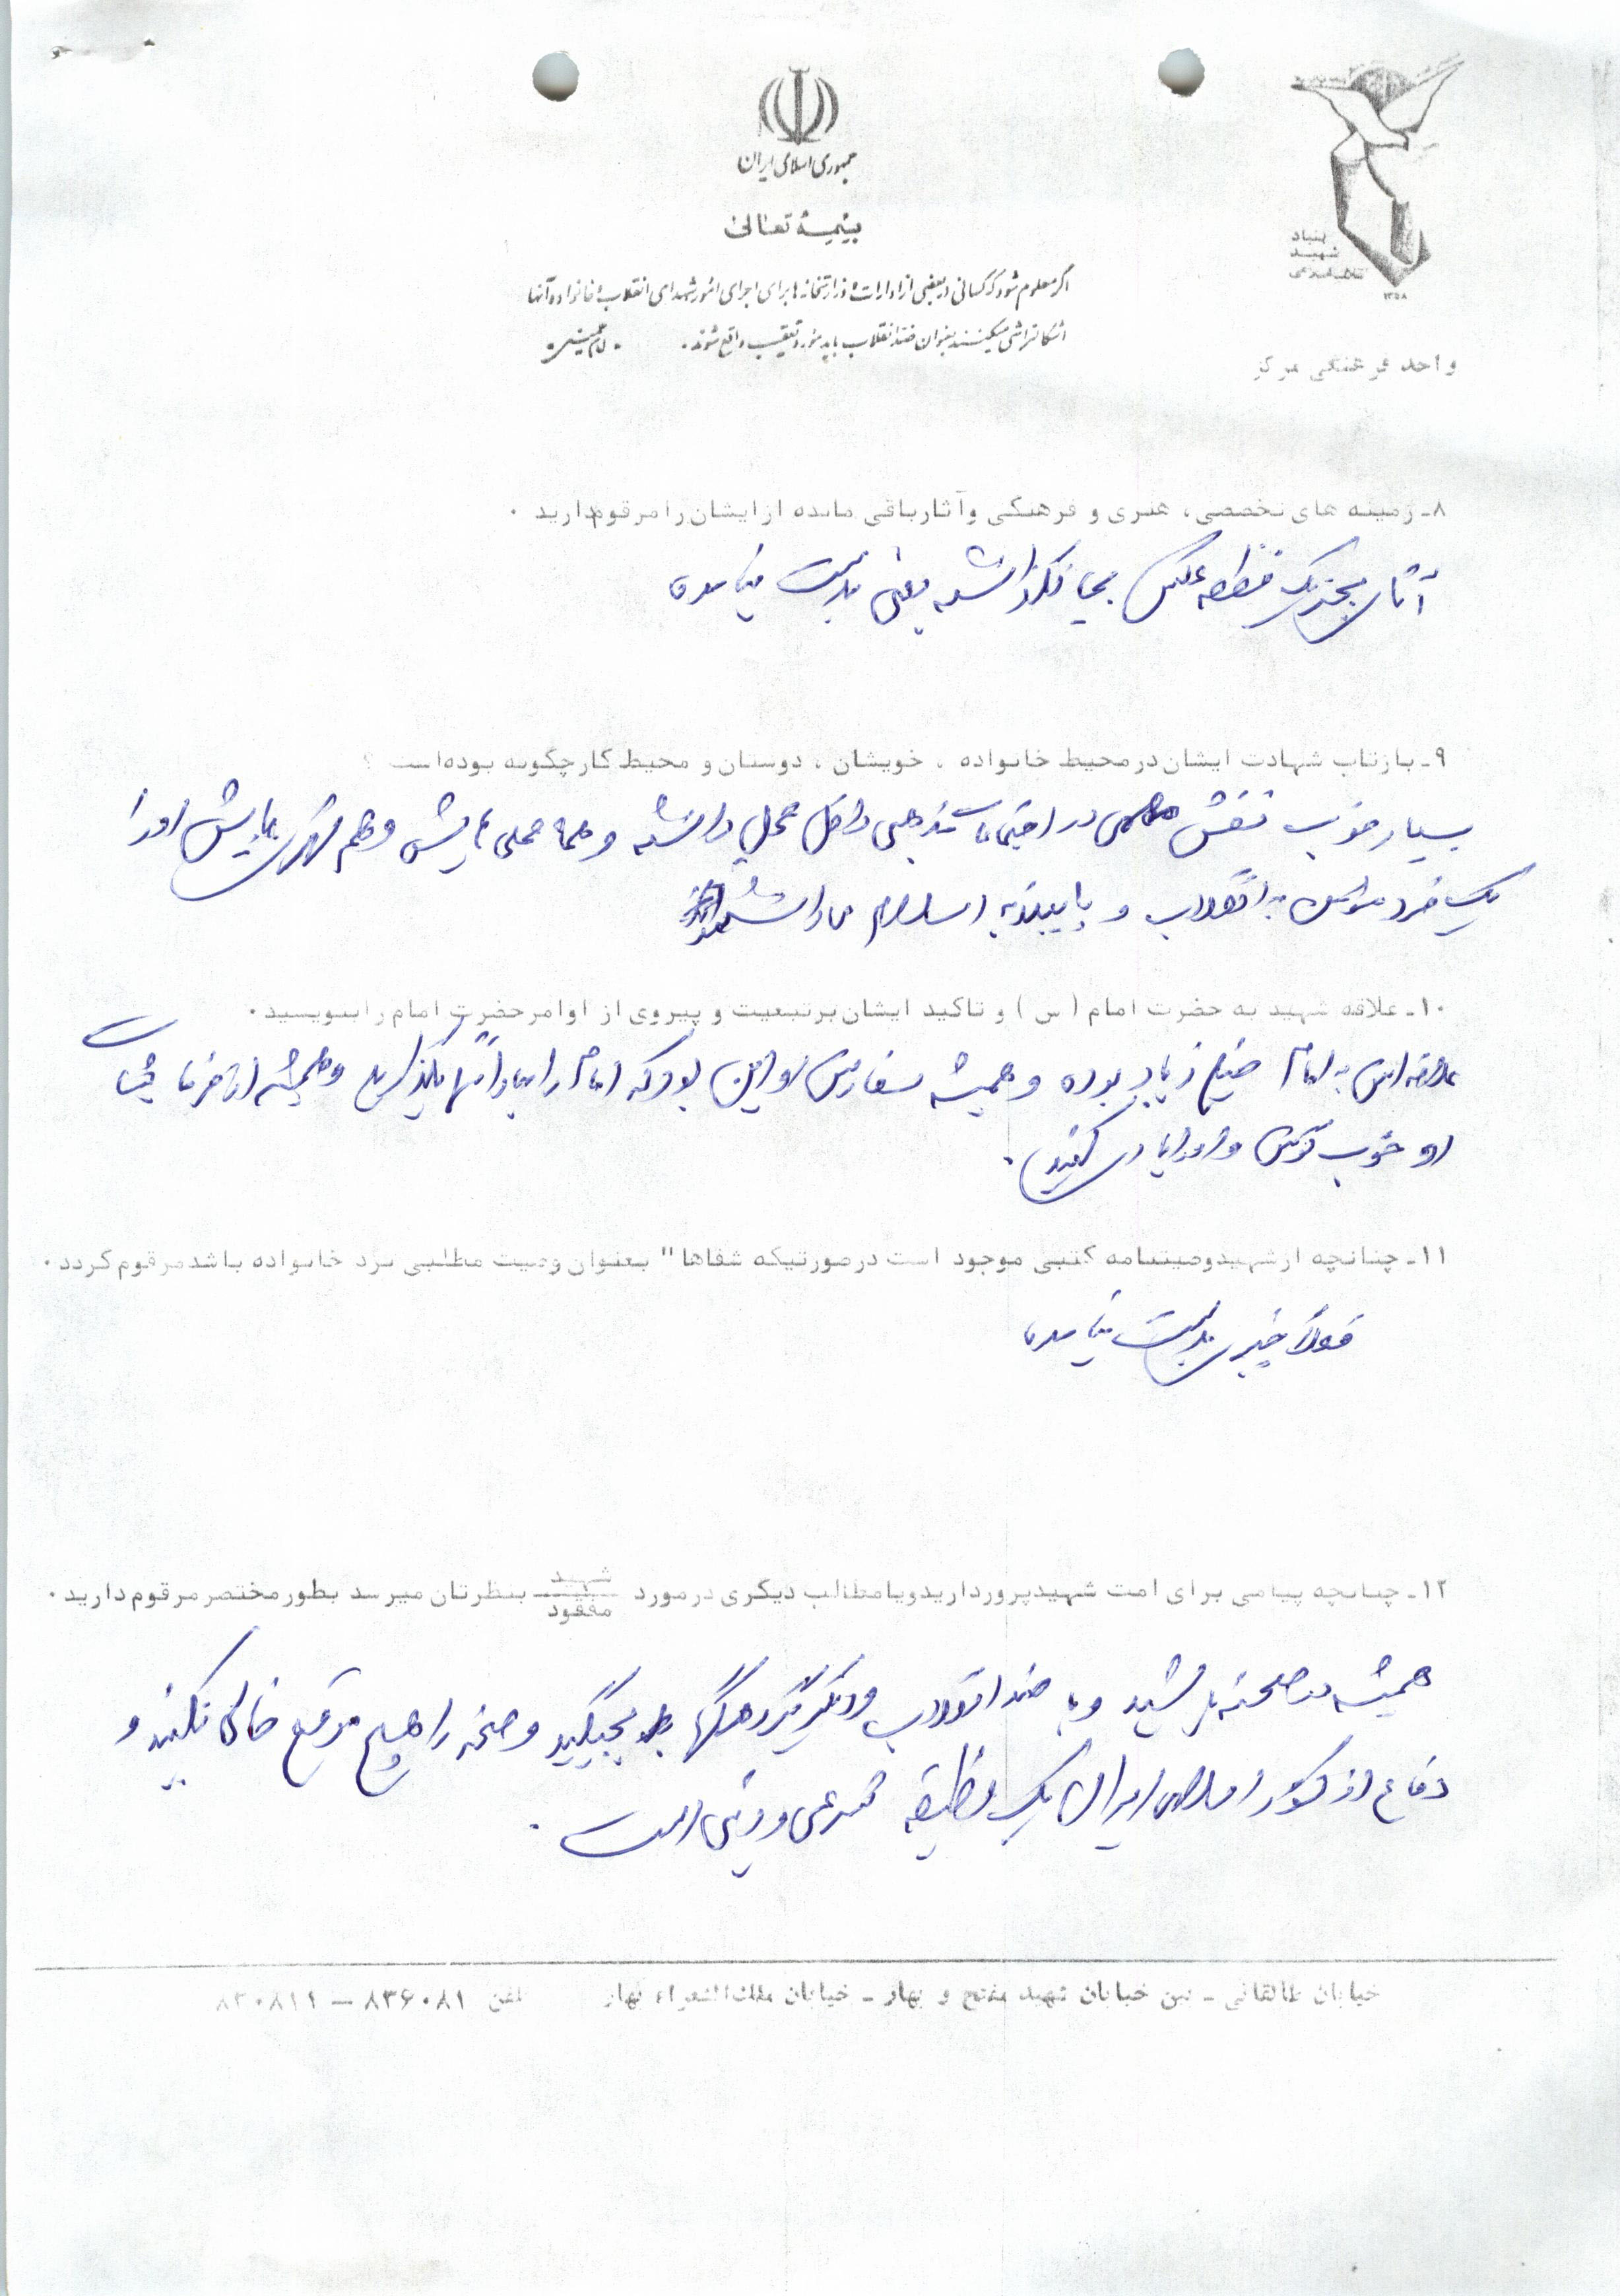 جمهوری اسلامی ایران
بسمه تعالی
بنیاد
شهید
انقلاب اسلامی
۱۳۵۸
اگر معلوم شود که کسانی در بعضی از ادارات و وزارتخانه ها برای اجرای امور شهدای انقلاب و خانواده آنها
اشکالتراشی میکنند بعنوان ضد انقلاب باید مورد تعقیب واقع شوند. امام خمینی
واحد فرهنگی مرکز
۸ـ زمینه های تخصصی، هنری و فرهنگی و آثار باقی مانده از ایشان را مرقوم دارید.
آثاری بجز یک قطعه عکس بجا نگذاشته یعنی بدست نیامده
۹ـ بازتاب شهادت ایشان در محیط خانواده، خویشان، دوستان و محیط کار چگونه بوده است؟
بسیار خوب نقش مهمی در اجتماعات مذهبی داخل محل داشته و هم محلی هایش و هم سنگری هایش او را
یک فرد مؤمن به انقلاب و پایبند به اسلام می دانستند
۱۰ـ علاقه شهید به حضرت امام (س) و تاکید ایشان بر تبعیت و پیروی از اوامر حضرت امام را بنویسید.
علاقه اش به امام خیلی زیاد بوده و همیشه سفارش او این بود که امام را مبادا تنها بگذارید و همیشه از فرمایشات
او خوب گوش و او را یاری کنید.
۱۱ـ چنانچه از شهید وصیتنامه کتبی موجود است در صورتیکه شفاها" بعنوان وصیت مطلبی نزد خانواده باشد مرقوم گردد.
فعلاً چیزی بدست نیامده
۱۲ـ چنانچه پیامی برای امت شهید پرور دارید و یا مطالب دیگری در مورد شهید مفقود بنظرتان میرسد بطور مختصر مرقوم دارید.
همیشه در صحنه باشید و با ضد انقلاب و دیگر گروهکها بجنگید و صحنه را هیچ موقع خالی نکنید و
دفاع از کشور اسلامی ایران یک وظیفه شرعی و دینی است.
خیابان طالقانی ـ بین خیابان شهید مفتح و بهار ـ خیابان ملک الشعراء بهار تلفن ۸۳۶۰۸۱ ـ